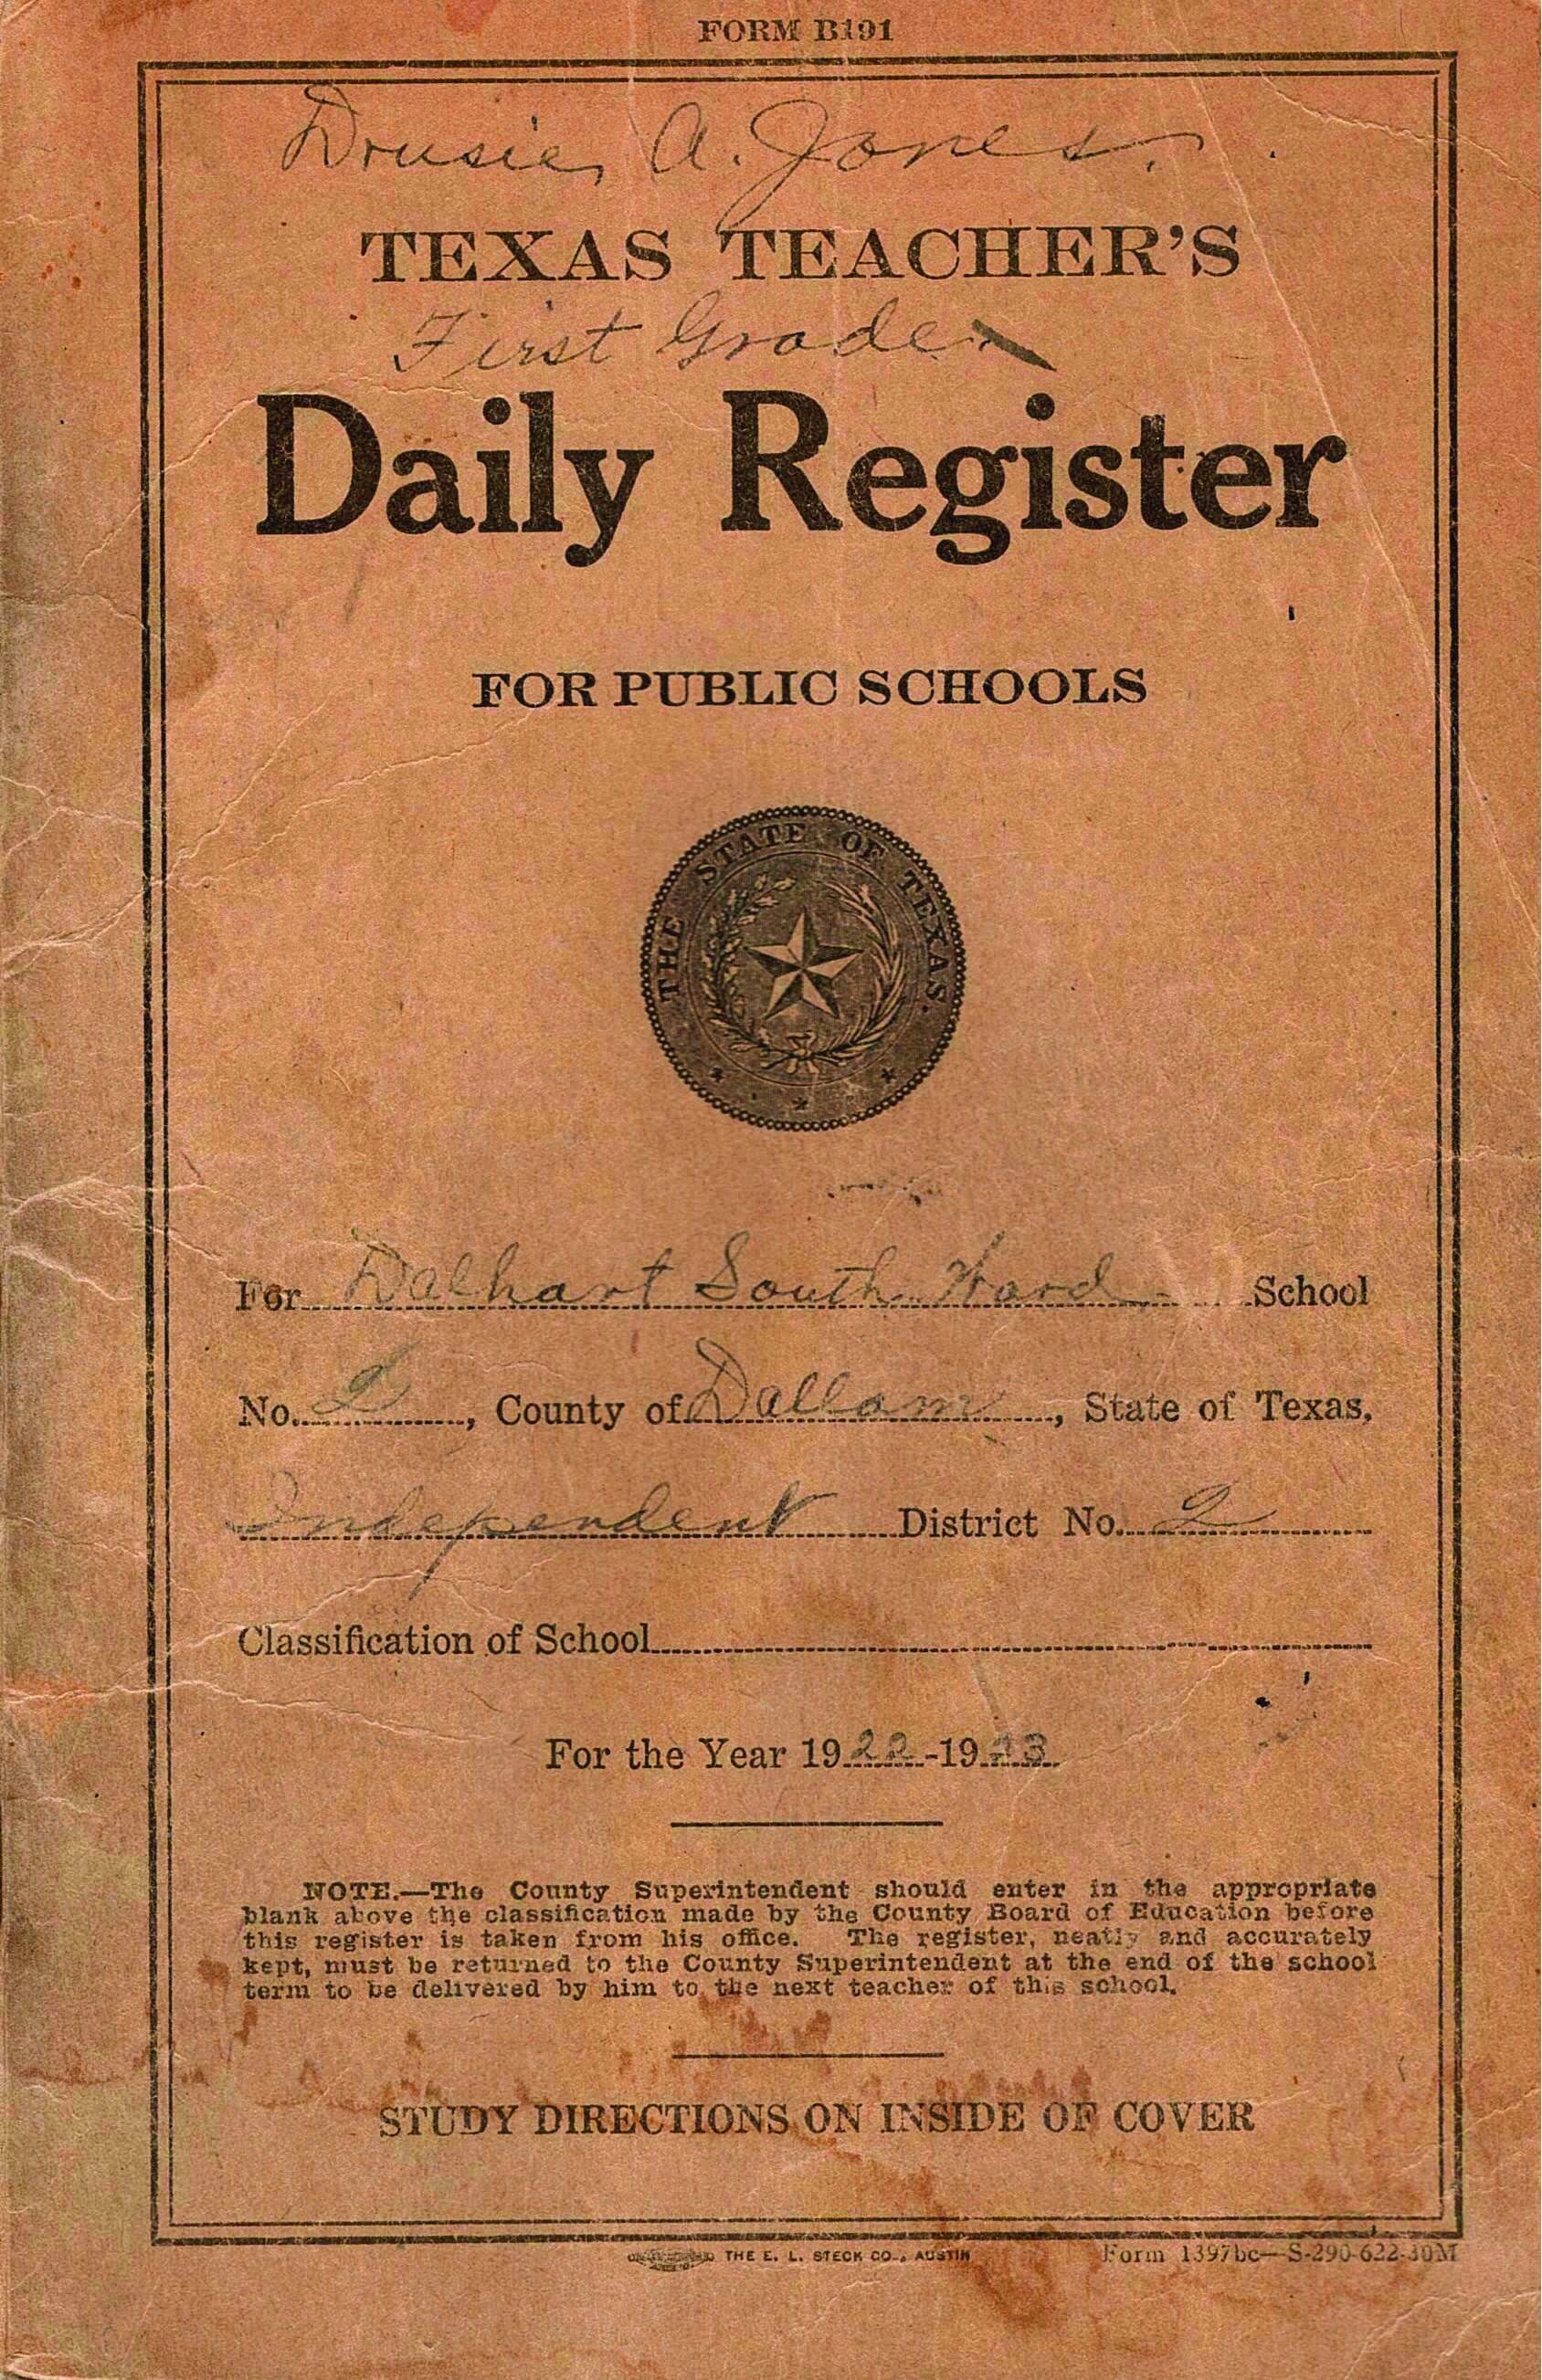 FORM B191
Drusie, A. Jones.
TEXAS TEACHER'S
First Grade
Daily Register
FOR PUBLIC SCHOOLS
THE STATE OF TEXAS.
For Dalhart South Ward School
No. 2, County of Dallam, State of Texas,
Independent District No. 2
Classification of School
For the Year 1922-1923
NOTE.—The County Superintendent should enter in the appropriate
blank above the classification made by the County Board of Education before
this register is taken from his office. The register, neatly and accurately
kept, must be returned to the County Superintendent at the end of the school
term to be delivered by him to the next teacher of this school.
STUDY DIRECTIONS ON INSIDE OF COVER
THE E. L. STECK CO., AUSTIN
Form 1397bc—S-290-622-30M